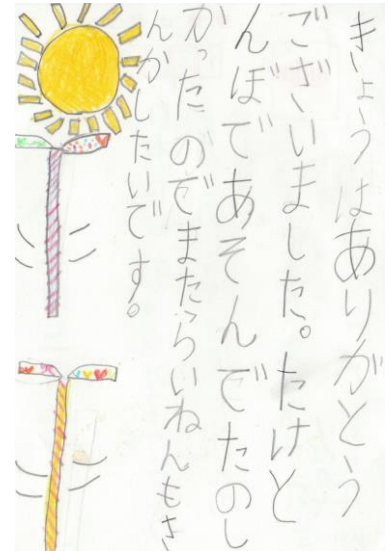 きょうはありがとう
ございました。たけと
んぼであそんでたのし
かったのでまたらいねんもさ
んかしたいです。